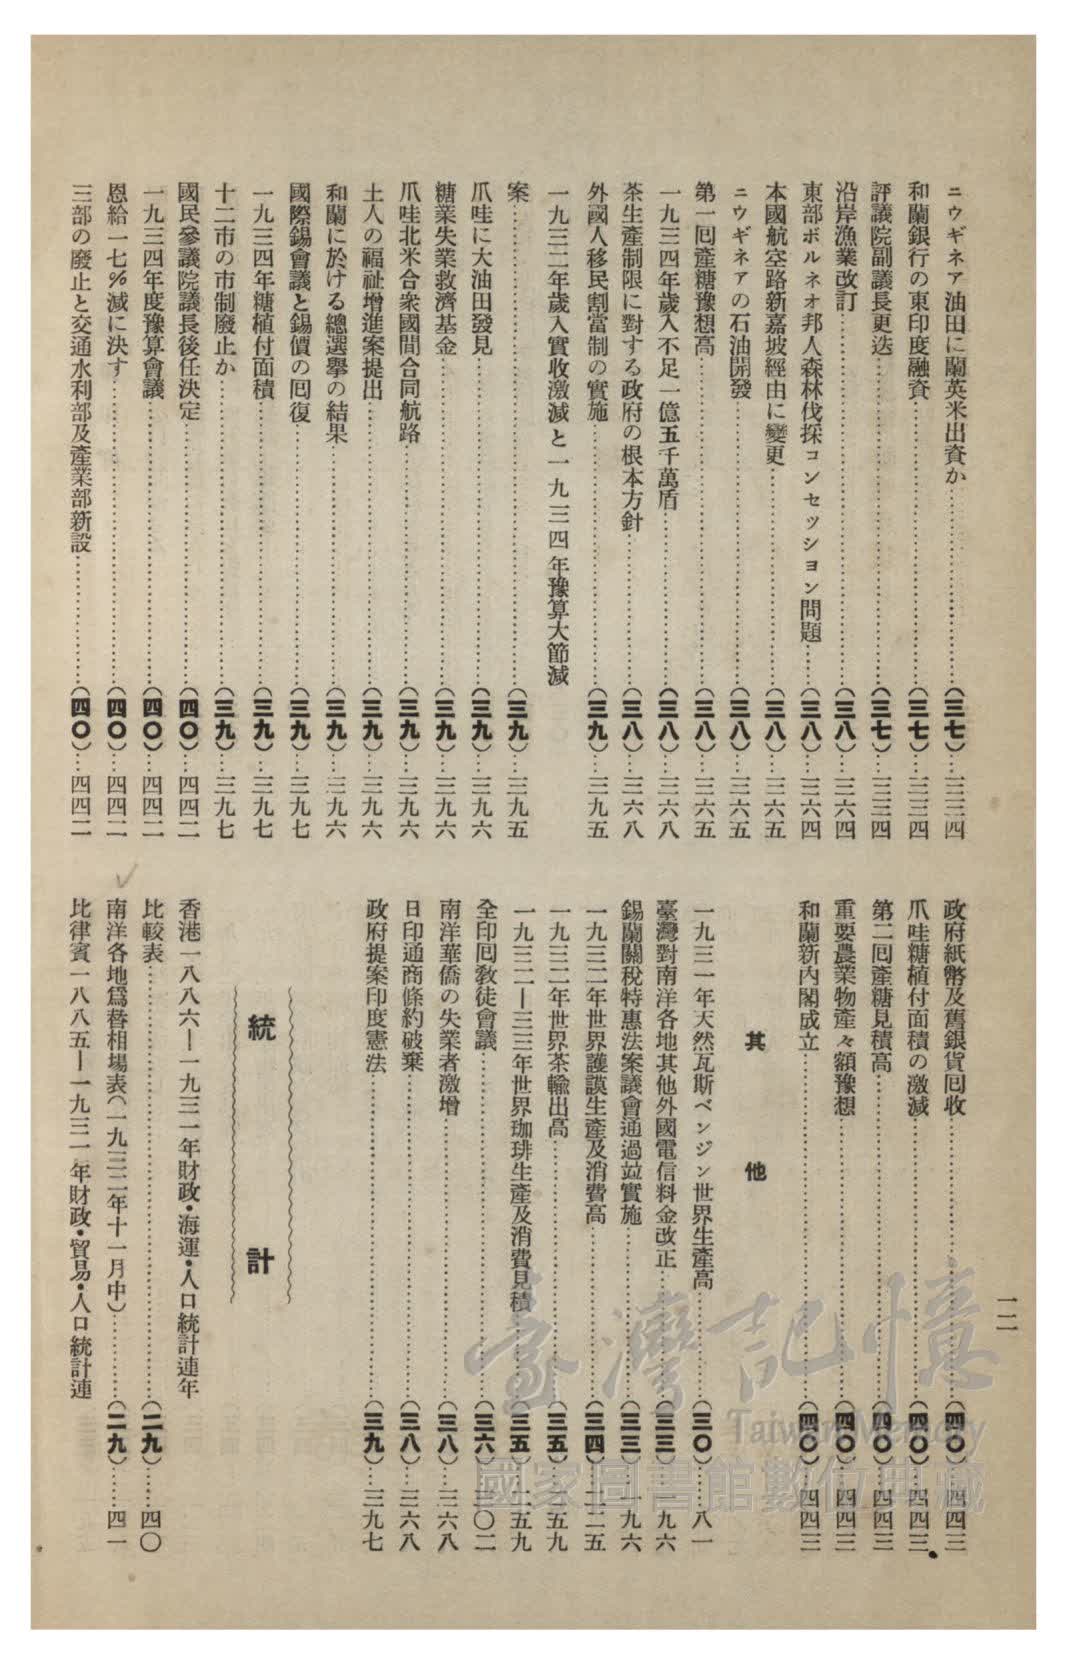 ニウギネア油田に蘭英米出資か…………(三七)…三三四
和蘭銀行の東印度融資…………(三七)…三三四
評議院副議長更迭…………(三七)…三三四
沿岸漁業改訂…………(三八)…三六四
東部ボルネオ邦人森林伐採コンセッション問題……(三八)…三六四
本國航空路新嘉坡經由に變更…………(三八)…三六五
ニウギネアの石油開發…………(三八)…三六五
第一囘產糖豫想高…………(三八)…三六五
一九三四年歲入不足一億五千萬盾…………(三八)…三六八
茶生產制限に對する政府の根本方針…………(三八)…三六八
外國人移民割當制の實施…………(三九)…三九五
一九三二年歲入實收激減と一九三四年豫算大節減
案…………(三九)…三九五
爪哇に大油田發見…………(三九)…三九六
糖業失業救濟基金…………(三九)…三九六
爪哇北米合衆國間合同航路…………(三九)…三九六
土人の福祉增進案提出…………(三九)…三九六
和蘭に於ける總選擧の結果…………(三九)…三九六
國際錫會議と錫價の囘復…………(三九)…三九七
一九三四年糖植付面積…………(三九)…三九七
十二市の市制廢止か…………(三九)…三九七
國民參議院議長後任決定…………(四〇)…四四二
一九三四年度豫算會議…………(四〇)…四四二
恩給一七%減に決す…………(四〇)…四四二
三部の廢止と交通水利部及產業部新設…………(四〇)…四四二
政府紙幣及舊銀貨囘收…………(四〇)…四四三
爪哇糖植付面積の激減…………(四〇)…四四三
第二囘產糖見積高…………(四〇)…四四三
重要農業物產々額豫想…………(四〇)…四四三
和蘭新內閣成立…………(四〇)…四四三
其他
一九三一年天然瓦斯ベンジン世界生產高……(三〇)…八一
臺灣對南洋各地其他外國電信料金改正……(三三)…一九六
錫蘭關稅特惠法案議會通過竝實施……(三三)…一九六
一九三二年世界護謨生產及消費高……(三四)…二二五
一九三二年世界茶輸出高…………(三五)…二五九
一九三二―三三年世界珈琲生產及消費見積……(三五)…二五九
全印囘敎徒會議…………(三六)…三〇二
南洋華僑の失業者激增…………(三八)…三六八
日印通商條約破棄…………(三八)…三六八
政府提案印度憲法…………(三九)…三九七
統計
香港一八八六―一九三一年財政・海運・人口統計連年
比較表…………(二九)……四〇
南洋各地爲替相場表(一九三二年十一月中)……(二九)……四一
比律賓一八八五―一九三一年財政・貿易・人口統計連
一二
臺灣記憶
Taiwan Memory
國家圖書館數位典藏